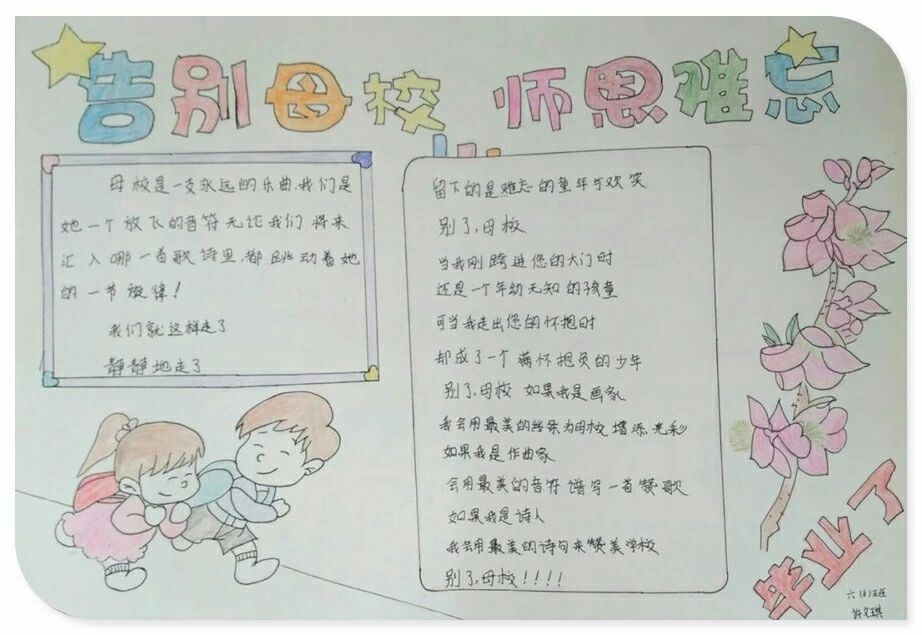 告别母校 师恩难忘
母校是一支永远的乐曲,我们是
她一个放飞的音符无论我们将来
汇入哪一首歌诗里,都跳动着她
的一节旋律!
我们就这样走了
静静地走了
留下的是难忘的童年与欢笑
别了,母校
当我刚跨进您的大门时
还是一个年幼无知的孩童
可当我走出您的怀抱时
却成了一个满怀抱负的少年
别了,母校 如果我是画家
我会用最美的线条为母校增添光彩
如果我是作曲家
会用最美的音符谱写一首赞歌
如果我是诗人
我会用最美的诗句来赞美学校
别了,母校!!!!
毕业了